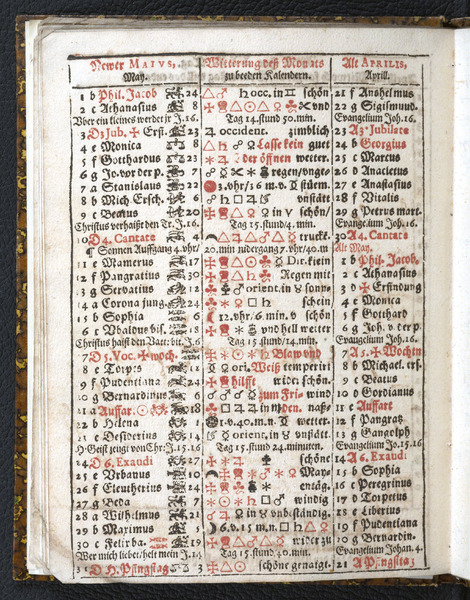 Newer MAIVS, Witterung deß Monats Alt APRILIS,
May. zu beeden Kalendern. Aprill.
1 b Phil. Jacob 24 occ. in schön 21 f Anshelmus
2 c Athanasius 8 und 22 g Sigismund.
Vber ein kleines werdet jr J. 16. Tag 14. stund 50. min. Evangelium Joh. 16.
3 D3 Jub. Erfi. 23 occident. zimblich 23 A3 Jubilate
4 e Monica 8 Lasse kein guet 24 b Georgius
5 f Gotthardus 23 der öffnen wetter. 25 c Marcus
6 g Jo. vor der p. 7 regen/unge- 26 d Anacletus
7 a Stanislaus 22 3. vhr/36 m. v. stüem. 27 e Anastasius
8 b Mich. Ersch. 6 vnstätt 28 f Vitalis
9 c Beatus 20 in v schön/ 29 g Petrus mart.
Christus verhaißt den Tr. J. 16. Tag 15. stund 4. min. Evangelium Joh. 16.
10 D4. Cantate 4 truckt- 30 A4. Cantate
Sonnen Auffgang 4. vhr/ 20. min nidergang 7. vhr/40. m Alt May.
11 e Mamertus 17 Dir. klein 1 b Phil. Jacob.
12 f Pangratius 30 Regen mit 2 c Athanasius
13 g Servatius orient. in sonn- 3 d Erfindung
14 a Corona jung. 24 schein/ 4 e Monica
15 b Sophia 6 12. vhr/6 min. v schön 5 f Gotthard
16 c Vbaldus bis. vnd hell wetter 6 g Joh. v der p.
Christus haißt den Vatt. bit. J. 16 Tag 15. stund/14. min. Evangelium Joh. 16.
17 D5. Voc. woch. Blaw vnd 7 A5. Wochin
8 b Michael. ers.
19 f Pudentiana 24 hilfft wider schön. 9 c Beatus
20 g Bernardinus zum Fri- wind 10 d Gordianus
21 a Auffar. 18 in m den. naß- 11 e Auffart
22 b Helena 1. v. 40. m. n wetter. 12 f Pangratz
23 c Desiderius orient, in vnstätt. 13 g Gangolph
H. Geist zeugt von Chr: J. 15. 16 Tag 15. stund 24. minuten. Evangelium Joh. 15. 16
24 D6. Exaudi schöne 14 A6. Exaudi
25 e Vrbanus 10 May- 15 b Sophia
26 f Eleutherius 24 entäg. 16 c Peregrinus
27 g Beda windig 17 d Torpetus
28 a Wilhelmus 21 in vnbeständig. 18 e Liberius
29 b Maximus 6. v. 15 m. n. 19 f Pudentiana
30 c Felix ba. 19 wider zu 20 g Bernardin.
Wer mich liebet/helt mein J. 14 Tag 15. stund 30. min. Evangelium Johan. 4.
31 D H. Pfingstag 3 schöne genaigt. 21 A Pfingstag